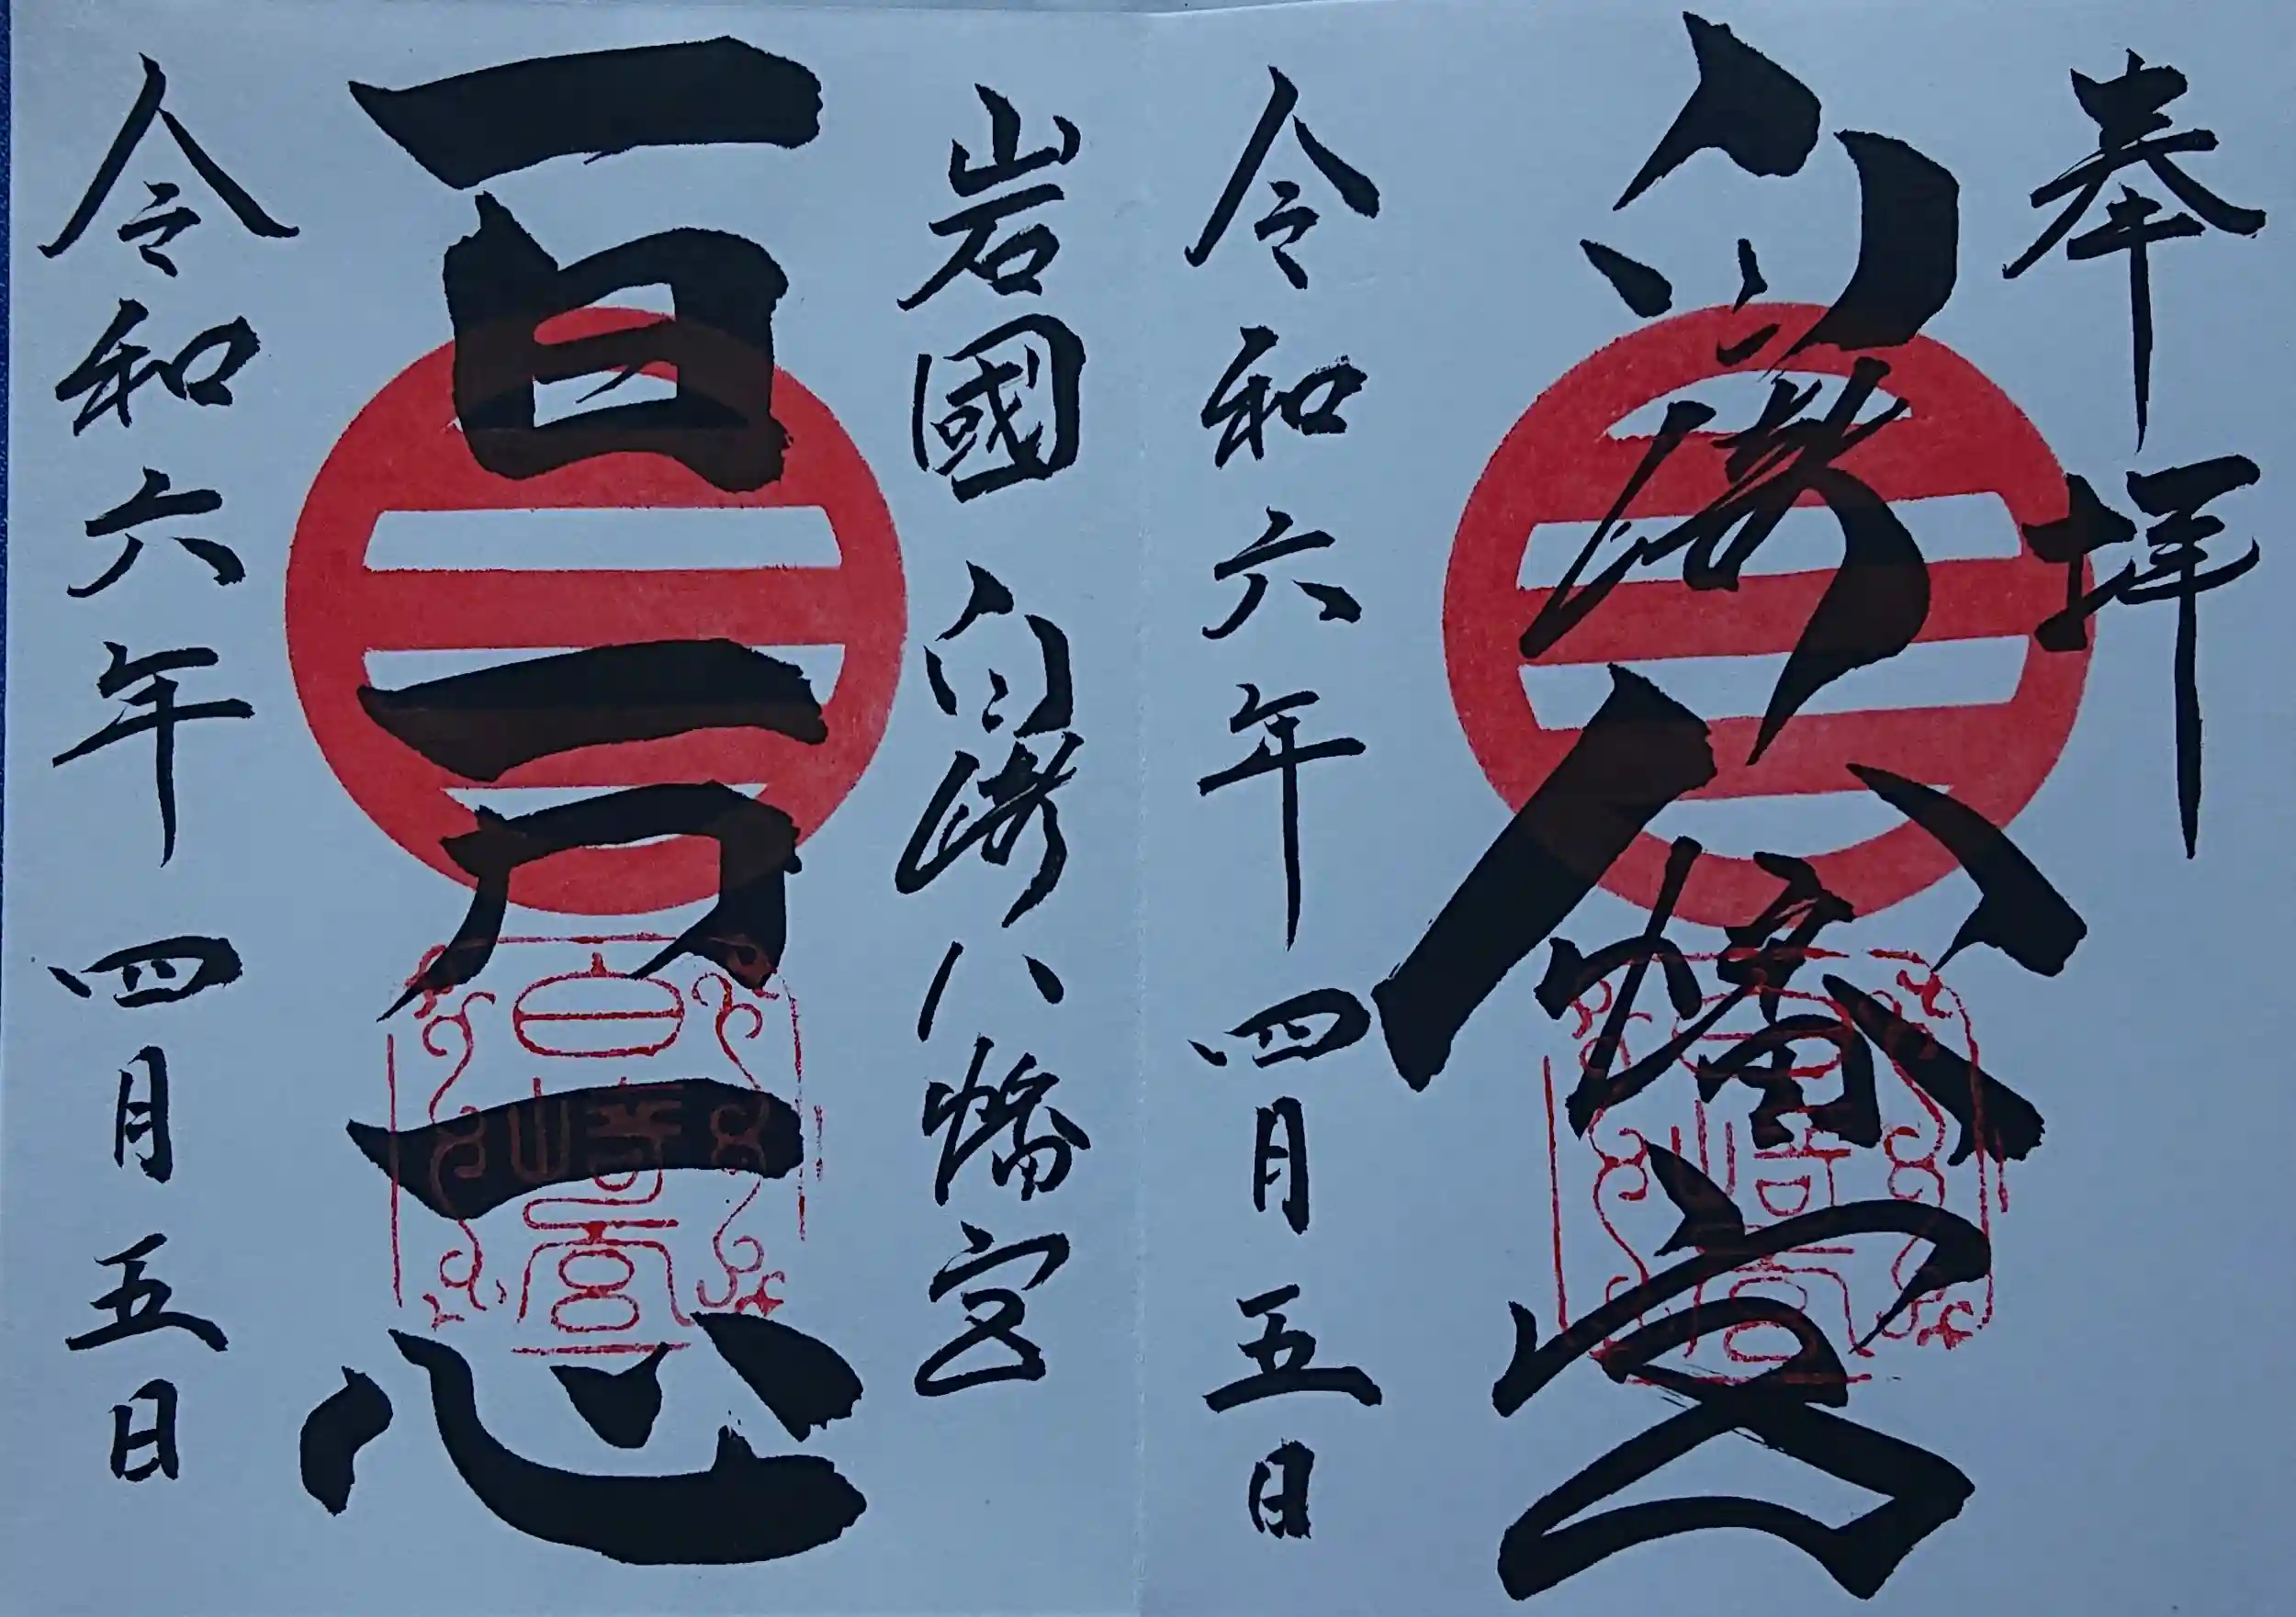 奉拝
白崎八幡宮
令和六年四月五日
岩國 白崎八幡宮
百万一心
令和六年四月五日
白崎宮
白崎宮